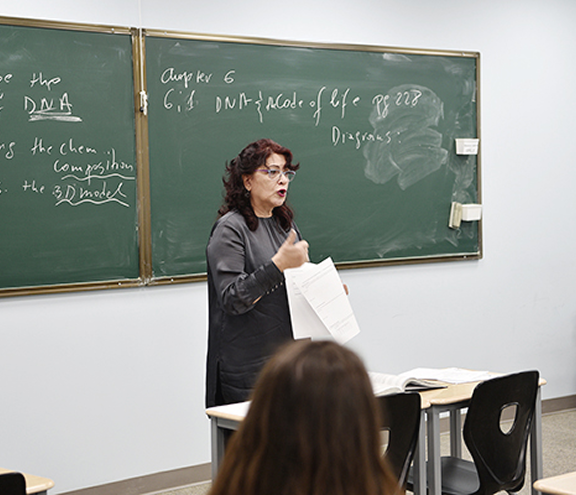 be the
DNA
ng the chem.
composition
the 3D model
Chapter 6
6.1 DNA & Code of life pg 228
Diagrams: